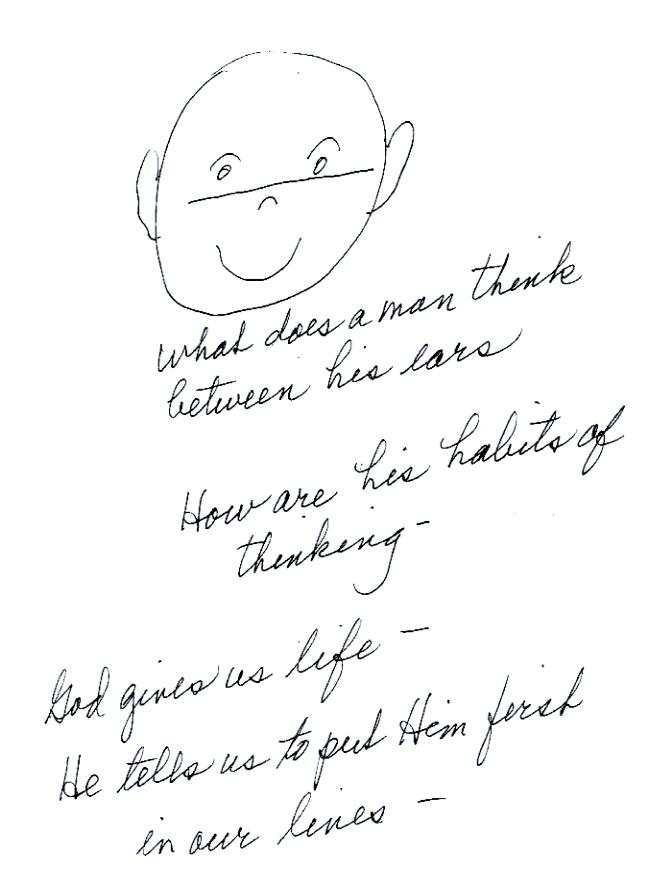 What does a man think
between his ears
How are his habits of
thinking -
God gives us life —
He tells us to put Him first
in our lives —